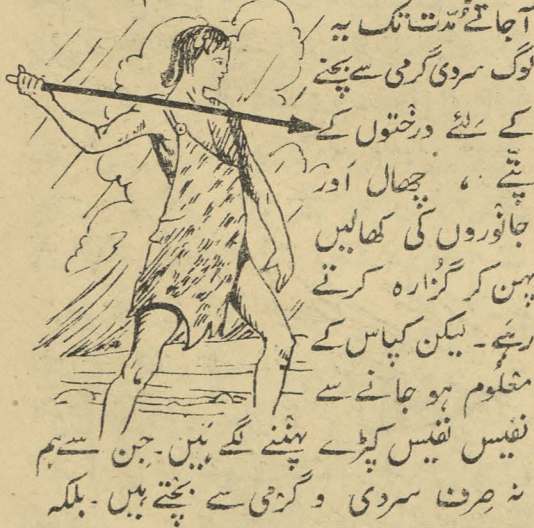 آجاتے مُدّت تک یہ
لوگ سردی گرمی سے بچنے
کے لئے درختوں کے
پتّے ، چھال اَور
جانوروں کی کھالیں
پہن کر گُزارہ کرتے
رہے ۔ لیکن کپاس کے
معلُوم ہو جانے سے
نفیس نفیس کپڑے پہننے لگے ہَیں ۔ جِن سے ہم
نہ صِرف سردی و گرمی سے بچتے ہیں ۔ بلکہ